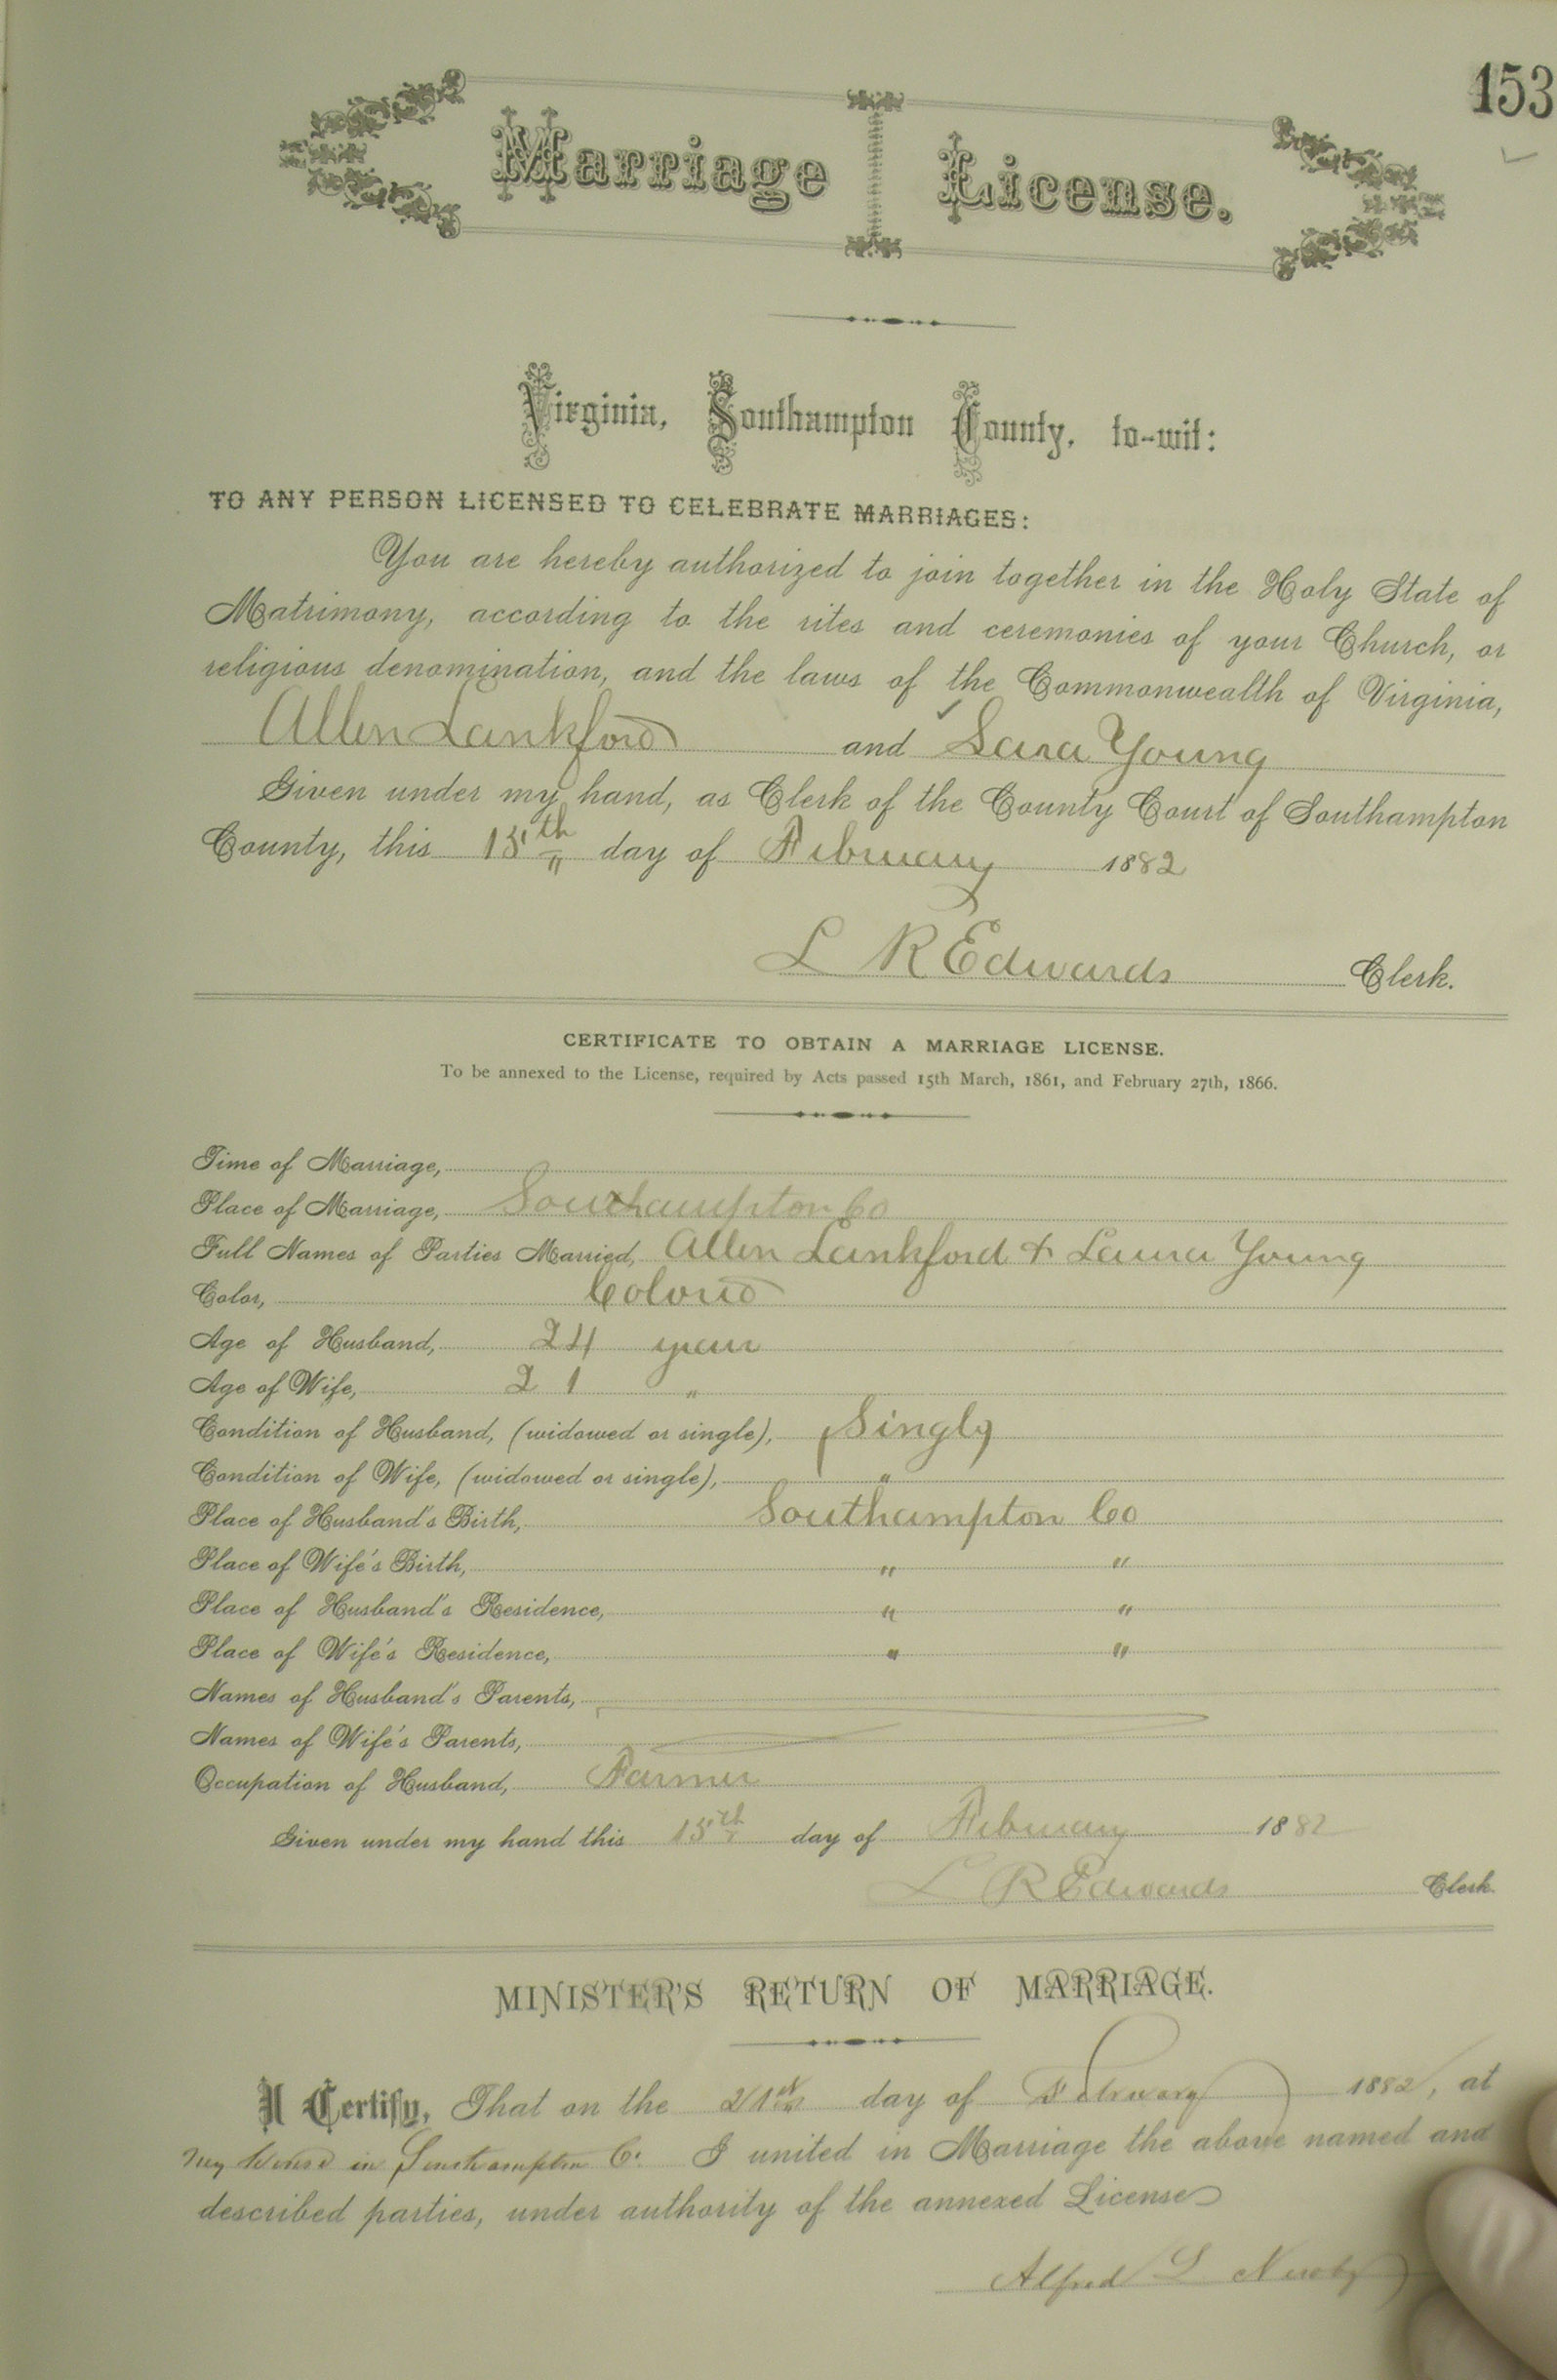 153
Marriage License.
Virginia, Southampton County, to-wit:
TO ANY PERSON LICENSED TO CELEBRATE MARRIAGES:
You are hereby authorized to join together in the Holy State of
Matrimony, according to the rites and ceremonies of your Church, or
religious denomination, and the laws of the Commonwealth of Virginia,
Allen Lankford and Young
Given under my hand, as Clerk of the County Court of Southampton
County, this 15th day of February 1882
L R Edwards Clerk.
CERTIFICATE TO OBTAIN A MARRIAGE LICENSE.
To be annexed to the License, required by Acts passed 15th March, 1861, and February 27th, 1866.
Time of Marriage,
Place of Marriage, Southampton Co
Full Names of Parties Married, Allen Lankford & Laura Young
Color, Colored
Age of Husband, 24 years
Age of Wife, 21 "
Condition of Husband, (widowed or single), Singly
Condition of Wife, (widowed or single), "
Place of Husband's Birth, Southampton Co
Place of Wife's Birth, " "
Place of Husband's Residence, " "
Place of Wife's Residence, " "
Names of Husband's Parents,
Names of Wife's Parents,
Occupation of Husband, Farmer
Given under my hand this 15th day of February 1882
L R Edwards Clerk
MINISTER'S RETURN OF MARRIAGE.
I Certify, That on the 21st day of February 1882, at
my house in Southampton Co. I united in Marriage the above named and
described parties, under authority of the annexed License
Alfred L